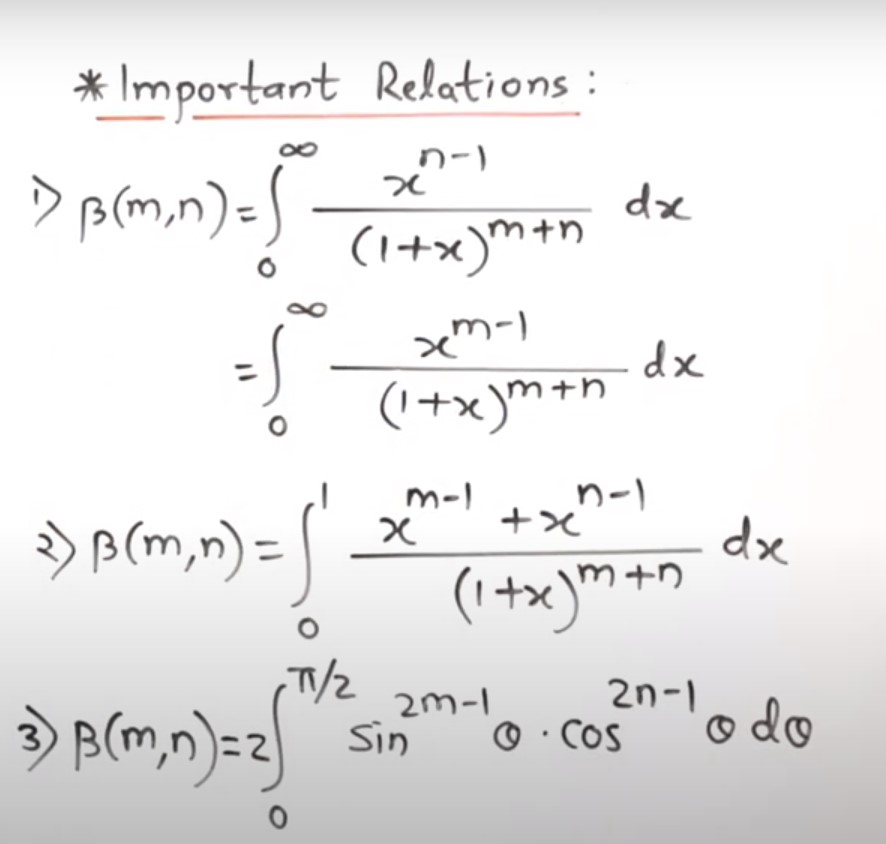 * Important Relations :
1) β(m,n) = ∫₀^∞ x^(n-1) / (1+x)^(m+n) dx
= ∫₀^∞ x^(m-1) / (1+x)^(m+n) dx
2) β(m,n) = ∫₀^1 (x^(m-1) + x^(n-1)) / (1+x)^(m+n) dx
3) β(m,n) = 2∫₀^(π/2) sin^(2m-1) θ · cos^(2n-1) θ dθ